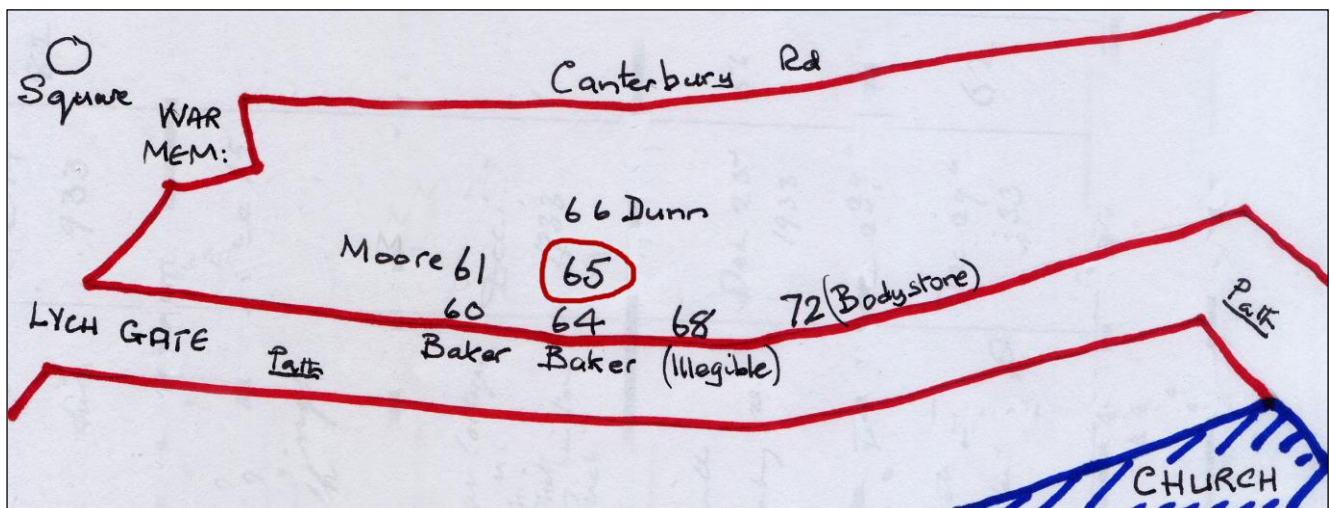 Square
WAR
MEM:
Canterbury Rd
66 Dunn
Moore 61
65
60
Baker
64
Baker
68
(Illegible)
72 (Bodystone)
LYCH GATE
Path
Path
CHURCH